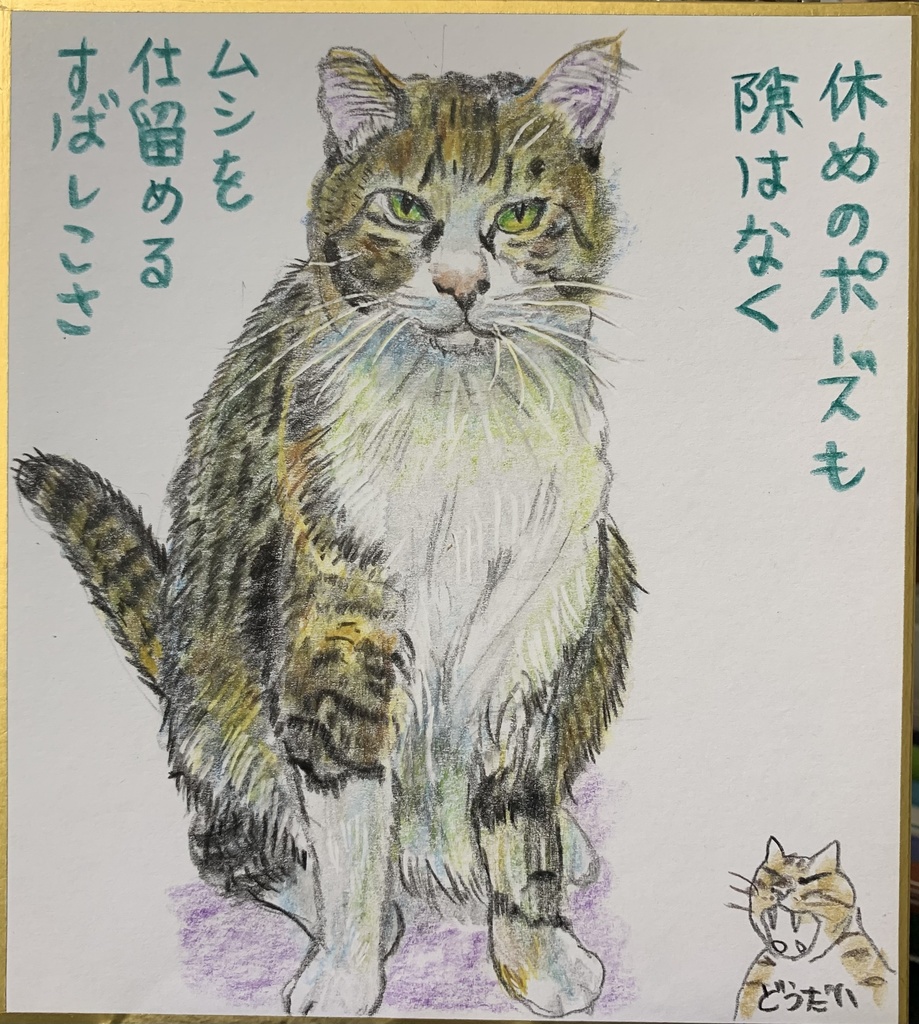 休めのポーズも
隙はなく
ムシを
仕留める
すばしこさ
どうだい